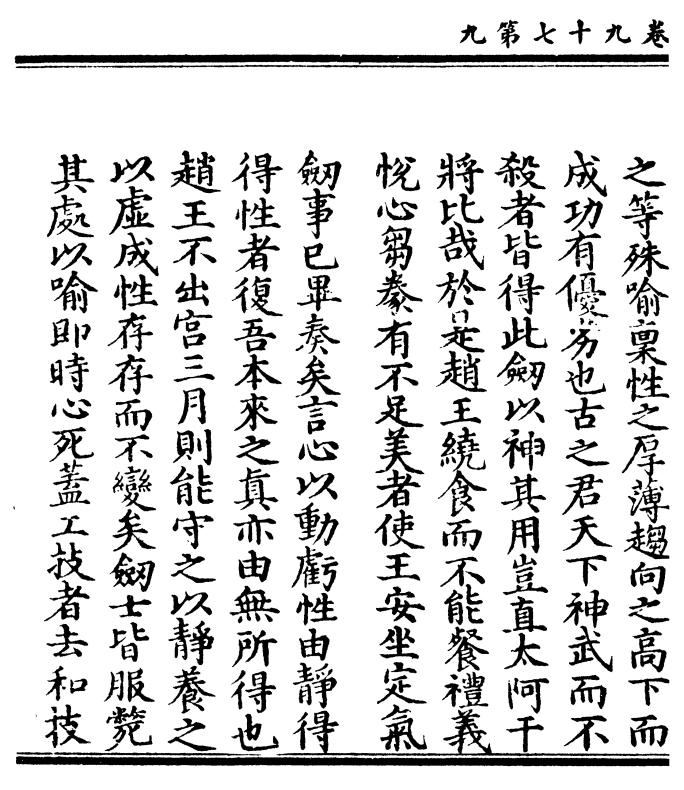 卷九十七第九
之等殊喻稟性之厚薄趨向之高下而
成功有優劣也古之君天下神武而不
殺者皆得此劒以神其用豈直太阿干
將比哉於是趙王繞食而不能餐禮義
悅心芻豢有不足美者使王安坐定氣
劒事已畢奏矣言心以動虧性由靜得
得性者復吾本來之真亦由無所得也
趙王不出宮三月則能守之以靜養之
以虛成性存存而不變矣劒士皆服斃
其處以喻即時心死蓋工技者去和技